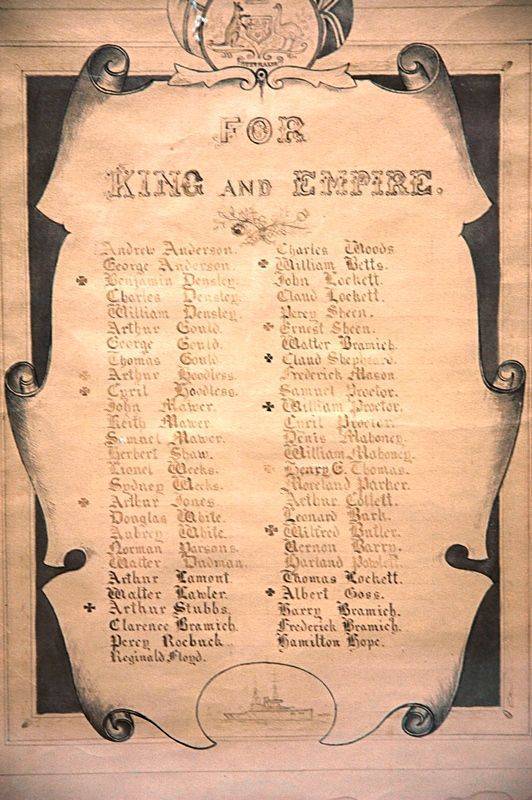 AUSTRALIA
FOR
KING AND EMPIRE.
Andrew Anderson.
George Anderson.
Benjamin Densley.
Charles Densley.
William Densley.
Arthur Gould.
George Gould.
Thomas Gould.
Arthur Hoodless.
Cyril Hoodless.
John Mawer.
Keith Mawer.
Samuel Mawer.
Herbert Shaw.
Lionel Weeks.
Sydney Weeks.
Arthur Jones.
Douglas White.
Aubrey White.
Norman Parsons.
Walter Dadman.
Arthur Lamont.
Walter Lawler.
Arthur Stubbs.
Clarence Bramich.
Percy Roebuck.
Reginald Floyd.
Charles Woods
William Betts.
John Lockett.
Claud Lockett.
Percy Sheen.
Ernest Sheen.
Walter Bramich.
Claud Sheppard.
Frederick Mason
Samuel Proctor.
William Proctor.
Cyril Proctor.
Denis Mahoney.
William Mahoney.
Henry G. Thomas.
Moreland Parker.
Arthur Collett.
Leonard Bark.
Wilfred Butler.
Vernon Barry.
Harland
Thomas Lockett.
Albert Goss.
Harry Bramich.
Frederick Bramich.
Hamilton Hope.